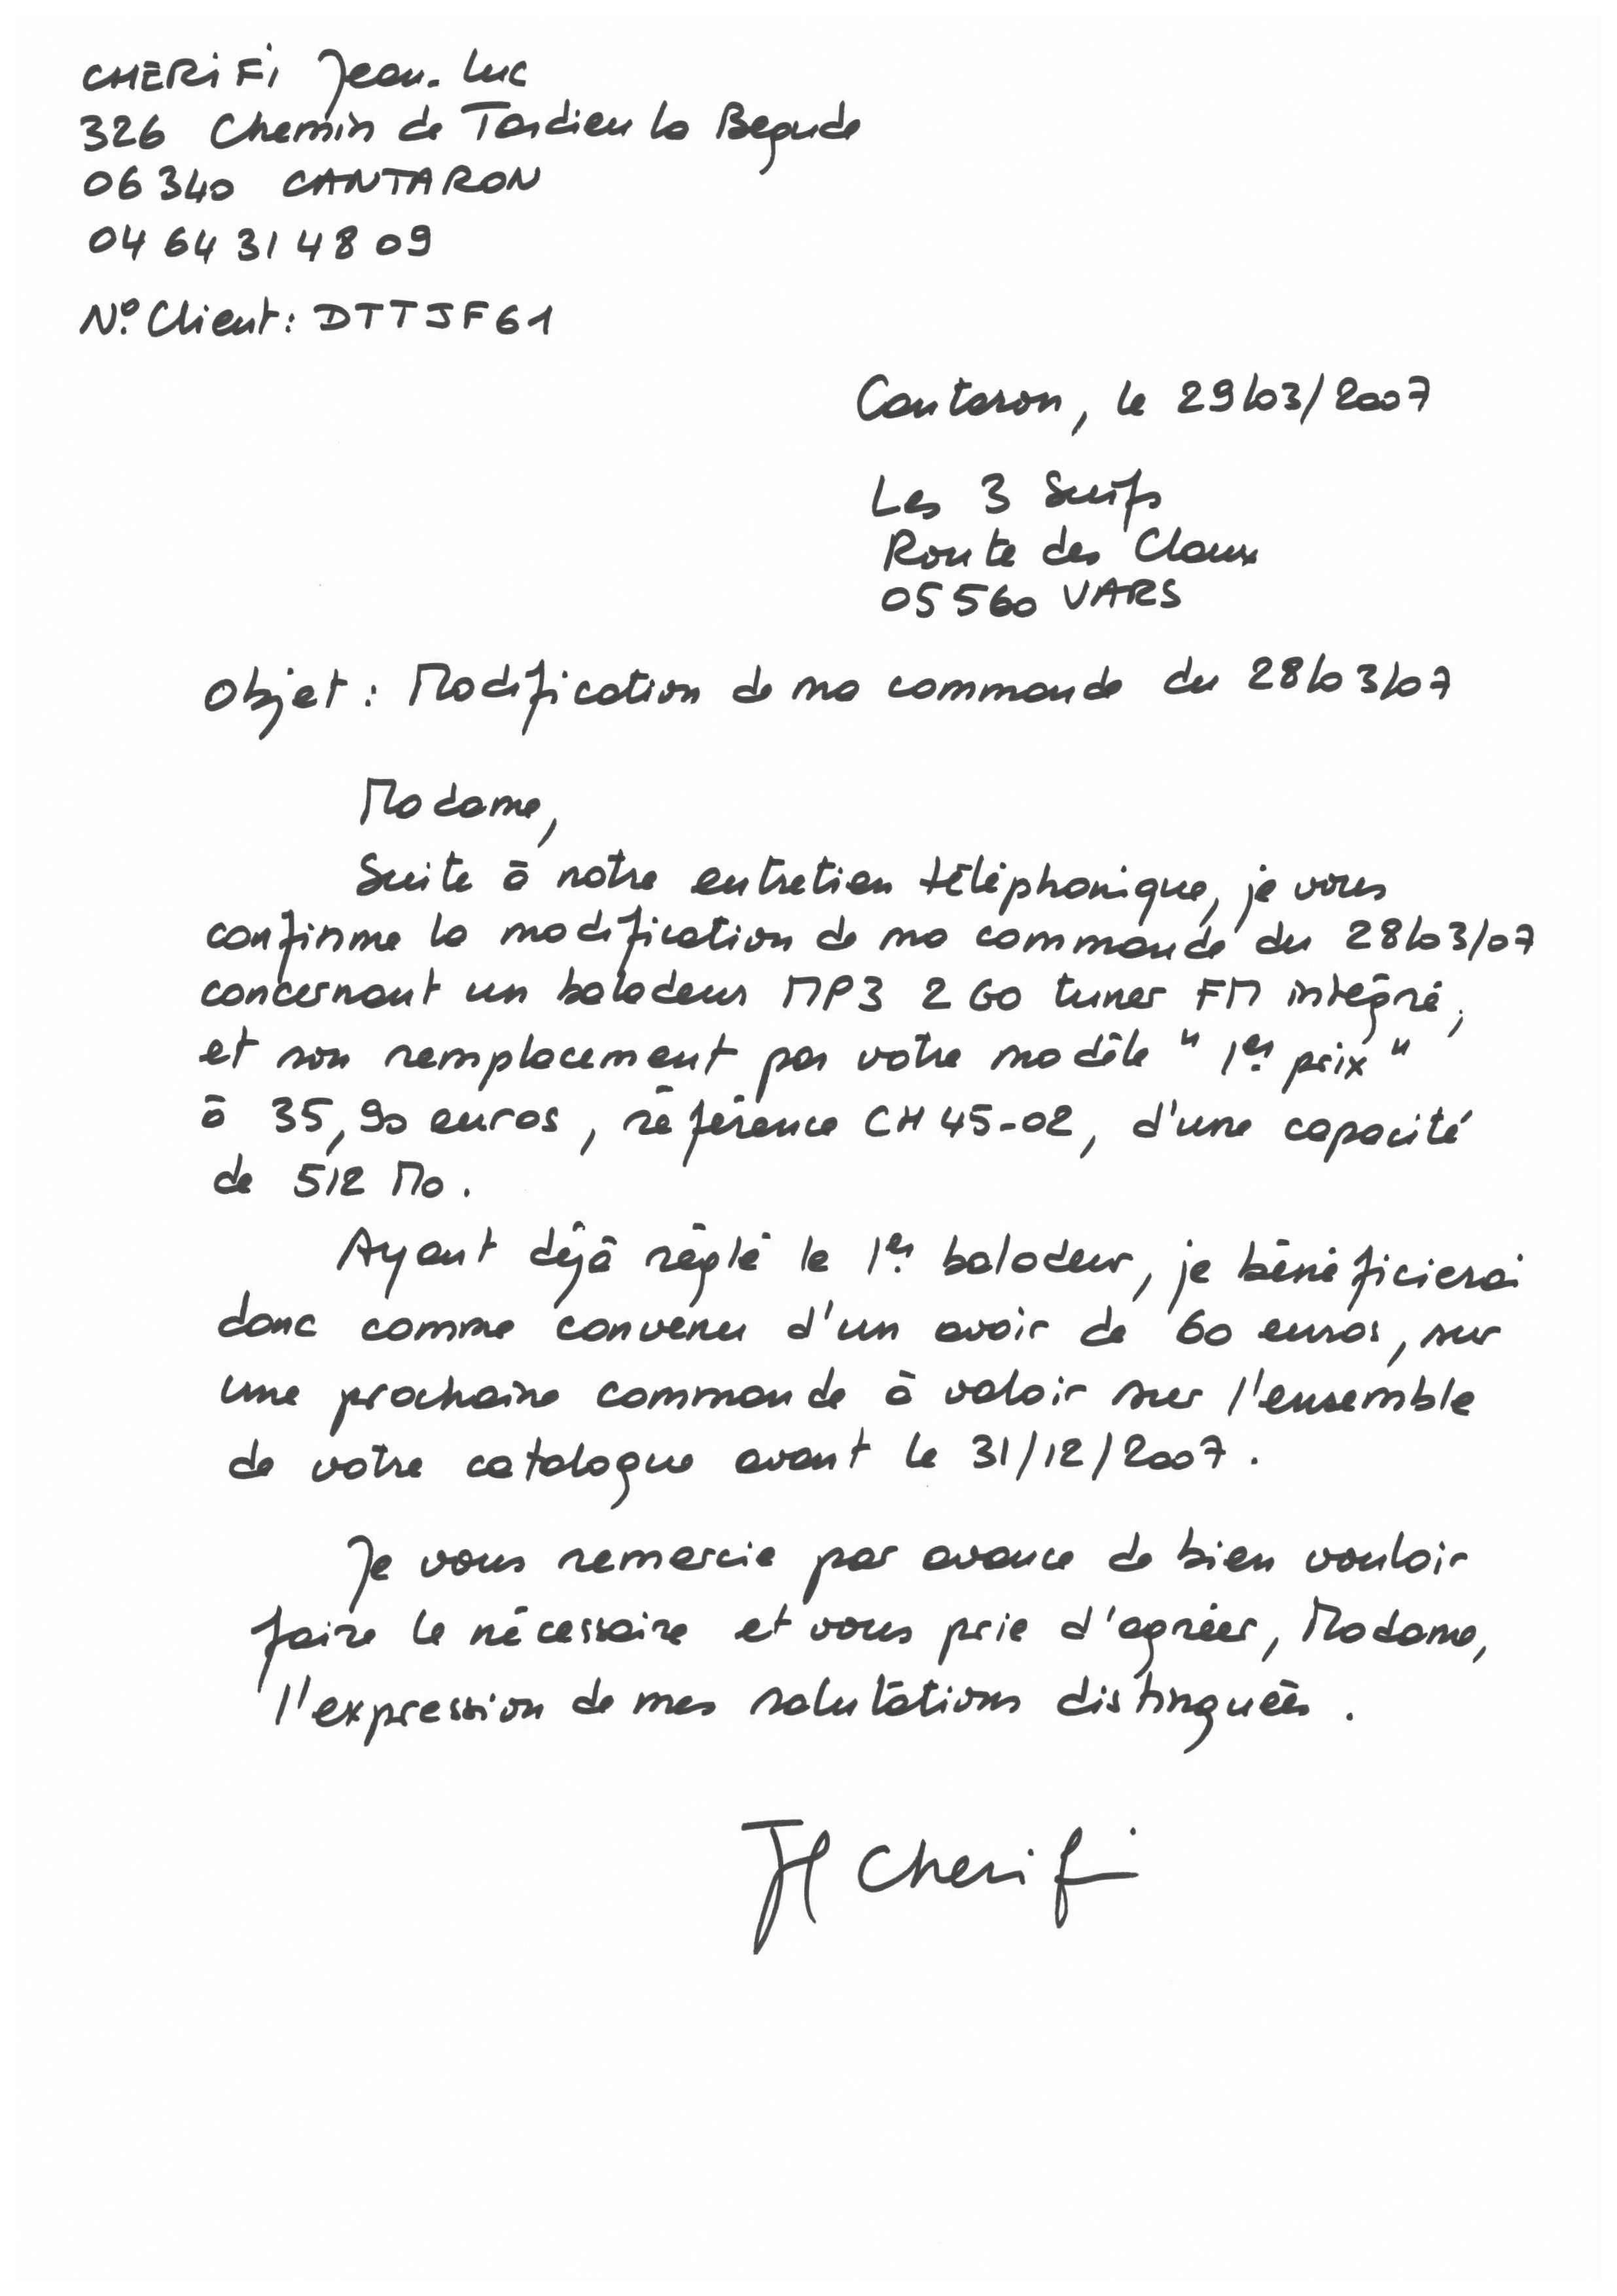 CHERIFI Jean-Luc
326 Chemin de Tardieu la Begude
06340 CANTARON
04 64 31 48 09
N° Client : DTTJF61
Cantaron, le 29/03/2007
Les 3 Suifs
Route des Claux
05560 VARS
Objet : Modification de ma commande du 28/03/07
Madame,
Suite à notre entretien téléphonique, je vous
confirme la modification de ma commande du 28/03/07
concernant un baladeur MP3 2 Go tuner FM intégré,
et son remplacement par votre modèle "1er prix"
à 35,90 euros, référence CH45-02, d'une capacité
de 512 Mo.
Ayant déjà réglé le 1er baladeur, je bénéficierai
donc comme convenu d'un avoir de 60 euros, sur
une prochaine commande à valoir sur l'ensemble
de votre catalogue avant le 31/12/2007.
Je vous remercie par avance de bien vouloir
faire le nécessaire et vous prie d'agréer, Madame,
l'expression de mes salutations distinguées.
JL Cherifi